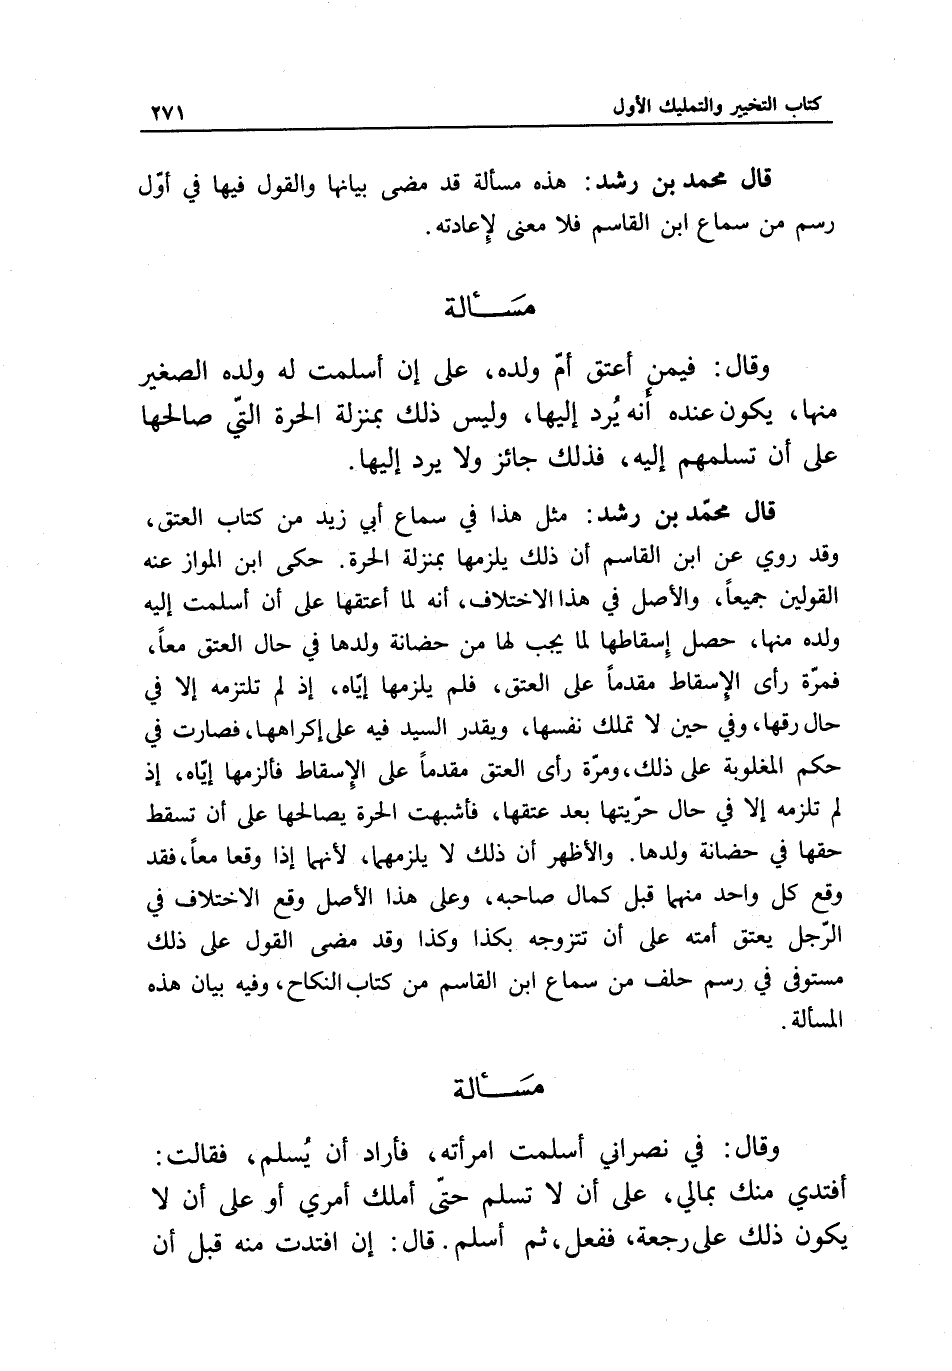 كتاب التخيير والتمليك الأول ٢٧١
قال محمد بن رشد: هذه مسألة قد مضى بيانها والقول فيها في أوّل
رسم من سماع ابن القاسم فلا معنى لإعادته.
مَسْـــألة
وقال: فيمن أعتق أمّ ولده، على إن أسلمت له ولده الصغير
منها، يكون عنده أَنه يُرد إليها، وليس ذلك بمنزلة الحرة التيّ صالحها
على أن تسلمهم إليه، فذلك جائز ولا يرد إليها.
قال محمّد بن رشد: مثل هذا في سماع أبي زيد من كتاب العتق،
وقد روي عن ابن القاسم أن ذلك يلزمها بمنزلة الحرة. حكى ابن المواز عنه
القولين جميعاً، والأصل في هذا الاختلاف، أنه لما أعتقها على أن أسلمت إليه
ولده منها، حصل إسقاطها لما يجب لها من حضانة ولدها في حال العتق معاً،
فمرّة رأى الإسقاط مقدماً على العتق، فلم يلزمها إيّاه، إذ لم تلتزمه إلا في
حال رقها، وفي حين لا تملك نفسها، ويقدر السيد فيه على إكراهها، فصارت في
حكم المغلوبة على ذلك، ومرّة رأى العتق مقدماً على الإسقاط فألزمها إيّاه، إذ
لم تلزمه إلا في حال حرّيتها بعد عتقها، فأشبهت الحرة يصالحها على أن تسقط
حقها في حضانة ولدها. والأظهر أن ذلك لا يلزمهما، لأنهما إذا وقعا معاً، فقد
وقع كل واحد منهما قبل كمال صاحبه، وعلى هذا الأصل وقع الاختلاف في
الرّجل يعتق أمته على أن تتزوجه بكذا وكذا وقد مضى القول على ذلك
مستوفى في رسم حلف من سماع ابن القاسم من كتاب النكاح، وفيه بيان هذه
المسألة.
مَسْـــألة
وقال: في نصراني أسلمت امرأته، فأراد أن يُسلم، فقالت:
أفتدي منك بمالي، على أن لا تسلم حتىّ أملك أمري أو على أن لا
يكون ذلك على رجعة، ففعل، ثم أسلم. قال: إن افتدت منه قبل أن